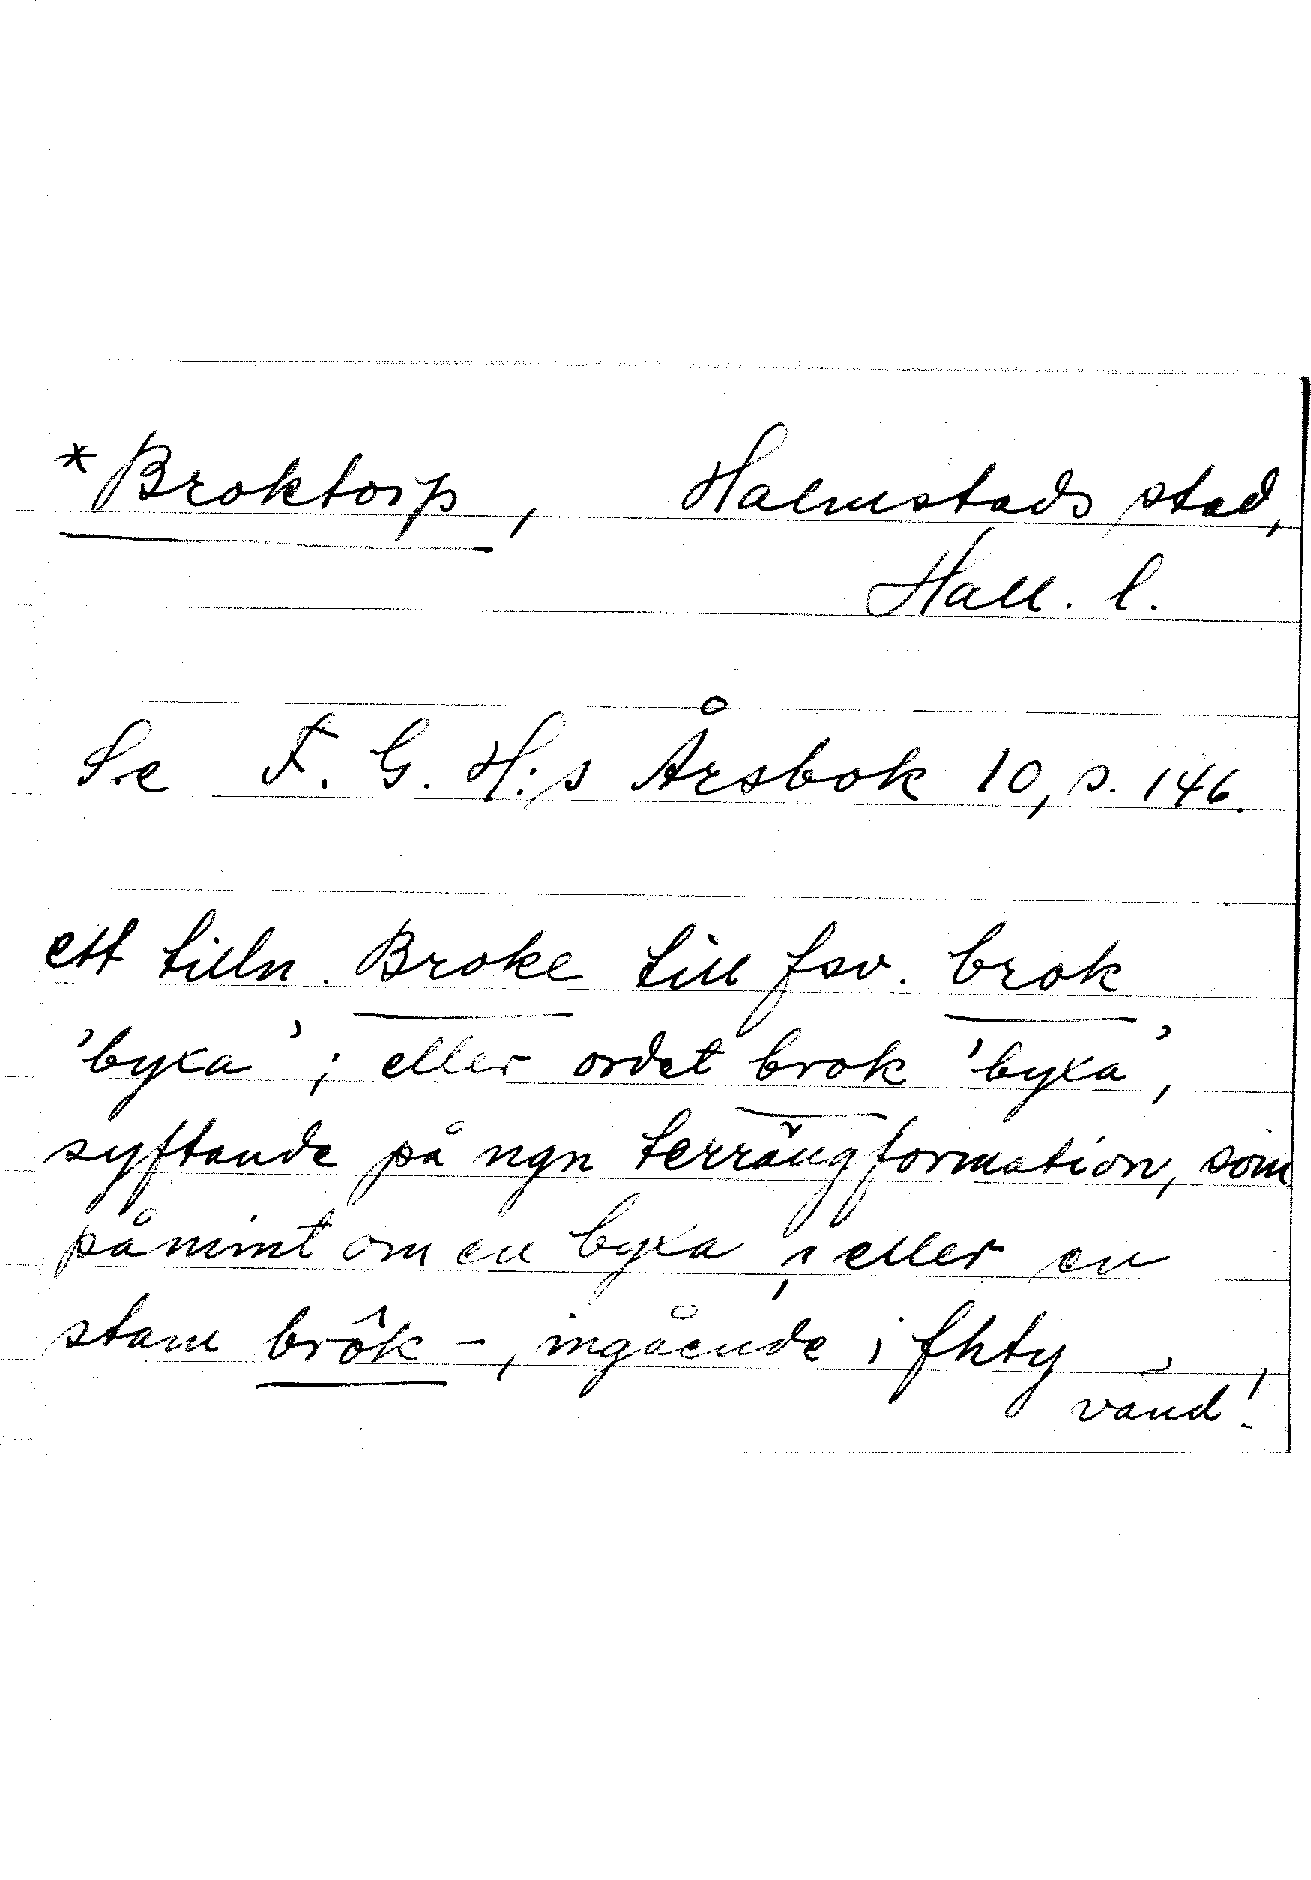 *Broktorp, Halmstads stad,
Hall. l.
Se F. G. H:s Årsbok 10, s. 146.
ett tilln. Broke till fsv. brok
'byxa'; eller ordet brok 'byxa',
syftande på ngn terrängformation, som
påmint om en byxa; eller en
stam brôk-, ingående i fhty
vänd!